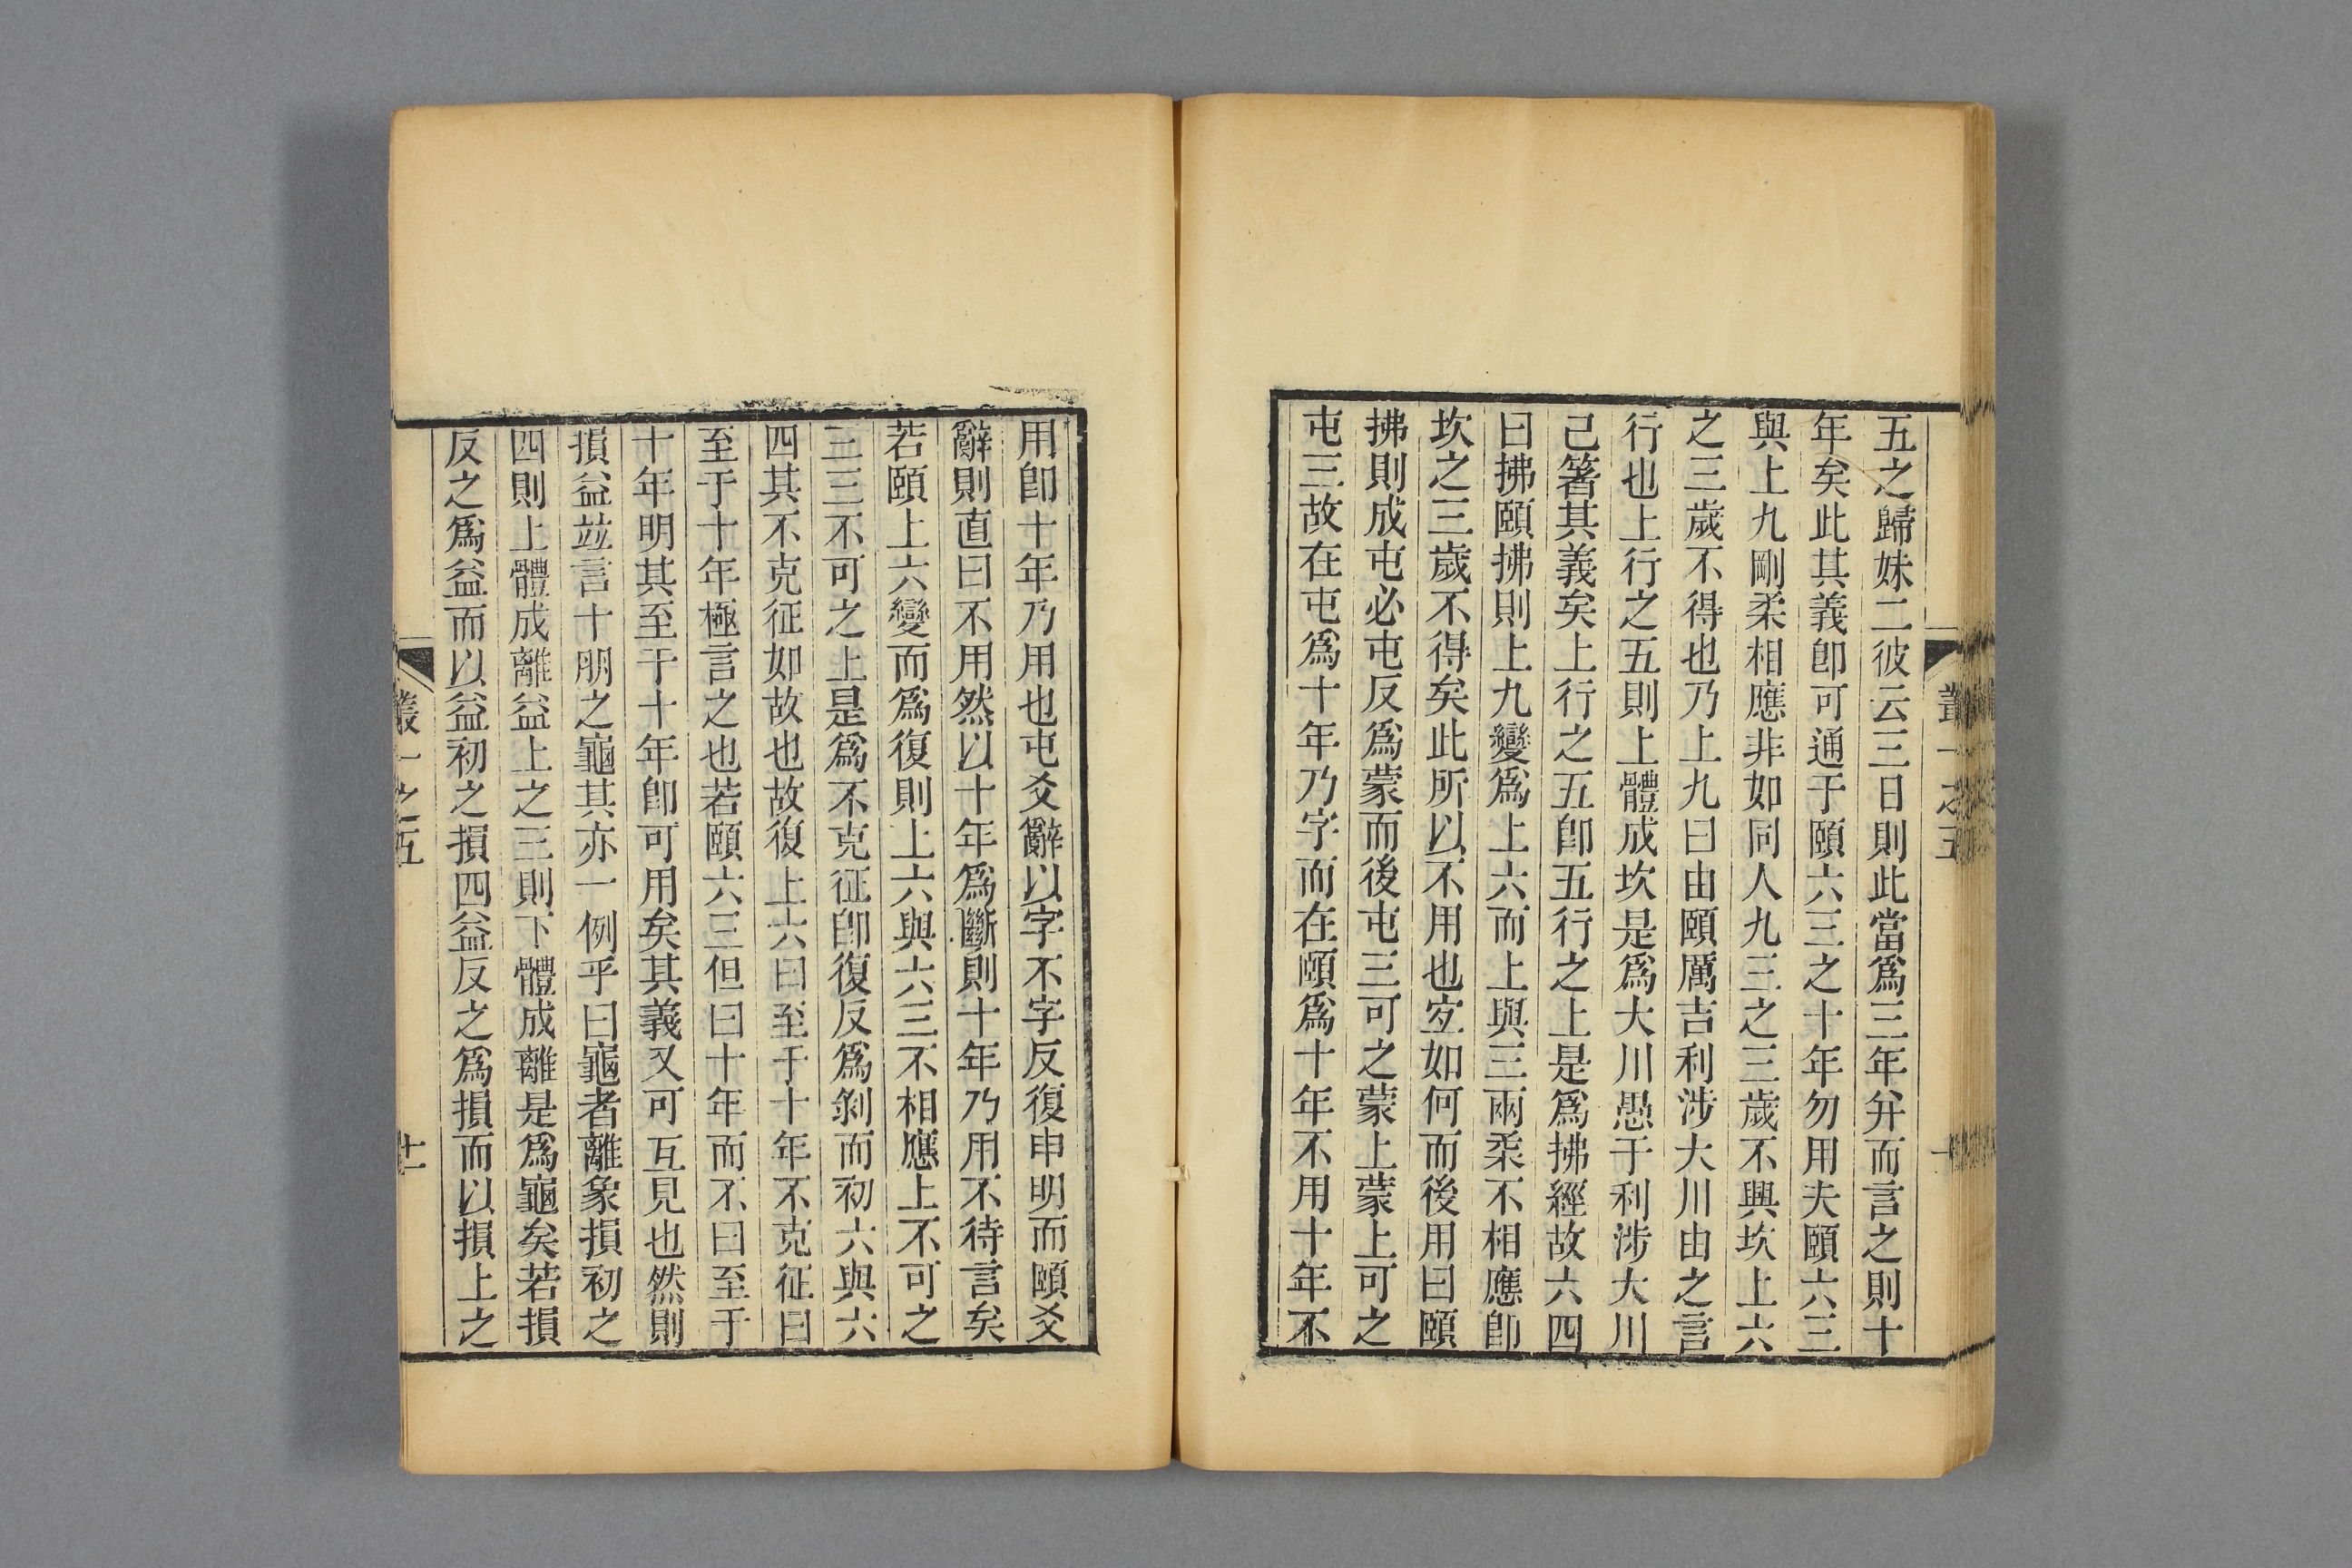 五之歸妹二彼云三日則此當爲三年弁而言之則十
年矣此其義卽可通于頤六三之十年勿用夫頤六三
與上九剛柔相應非如同人九三之三歲不興坎上六
之三歲不得也乃上九曰由頤厲吉利涉大川由之言
行也上行之五則上體成坎是爲大川愚于利涉大川
己箸其義矣上行之五卽五行之上是爲拂經故六四
曰拂頤拂則上九變爲上六而上與三兩柔不相應卽
坎之三歲不得矣此所以不用也宐如何而後用曰頤
拂則成屯必屯反爲蒙而後屯三可之蒙上蒙上可之
屯三故在屯爲十年乃字而在頤爲十年不用十年不
用卽十年乃用也屯爻辭以字不字反復申明而頤爻
辭則直曰不用然以十年爲斷則十年乃用不待言矣
若頤上六變而爲復則上六與六三不相應上不可之
三三不可之上是爲不克征卽復反爲剝而初六與六
四其不克征如故也故復上六曰至于十年不克征曰
至于十年極言之也若頤六三但曰十年而不曰至于
十年明其至于十年卽可用矣其義又可互見也然則
損益竝言十朋之龜其亦一例乎曰龜者離象損初之
四則上體成離益上之三則下體成離是爲龜矣若損
反之爲益而以益初之損四益反之爲損而以損上之
叢一之五
十一